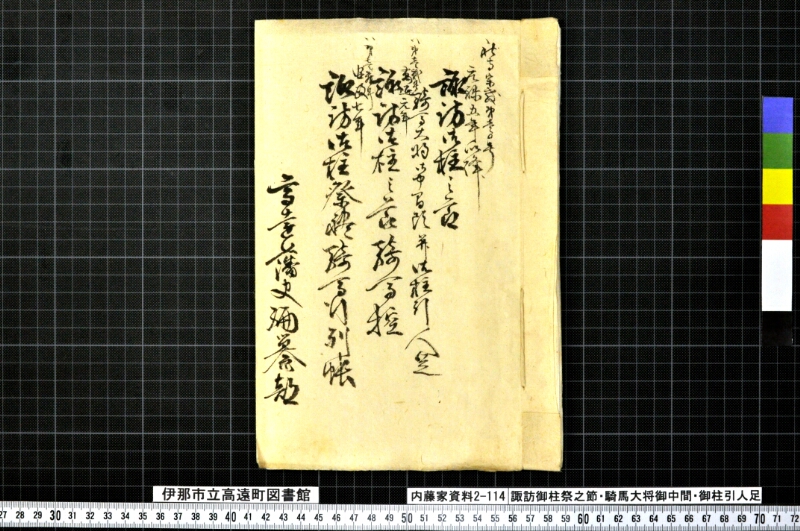 元禄五年以降
諏訪御柱之節
騎馬大将御中間并御柱引人足
諏訪御柱之節騎馬控
諏訪御柱祭礼騎馬行列帳
高遠藩史編纂部
伊那市立高遠町図書館
内藤家資料2-114
諏訪御柱祭之節・騎馬大将御中間・御柱引人足
27 28 29 30 31 32 33 34 35 36 37 38 39 40 41 42 43 44 45 46 47 48 49 50 51 52 53 54 55 56 57 58 59 60 61 62 63 64 65 66 67 68 69 70 71 72